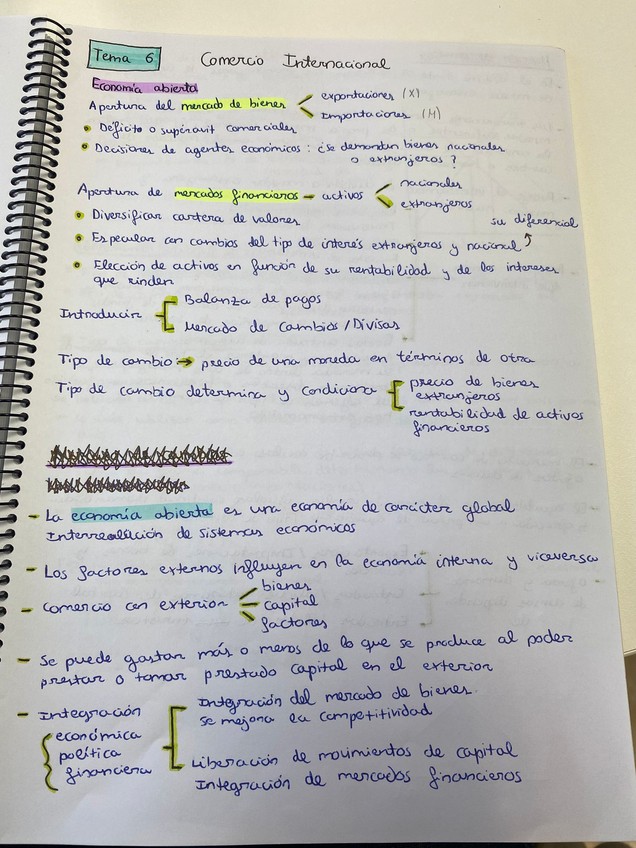 Tema 6 Comercio Internacional
Economía abierta
Apertura del mercado de bienes exportaciones (X)
Importaciones (M)
Déficit o superávit comerciales
Decisiones de agentes económicos: ¿se demandan bienes nacionales
o extranjeros?
Apertura de mercados financieros - activos nacionales
extranjeros
Diversificar cartera de valores
su diferencial
Especular con cambios del tipo de interés extranjeros y nacional
Elección de activos en función de su rentabilidad y de los intereses
que rinden
Introducir Balanza de pagos
Mercado de cambios/Divisas
Tipo de cambio → precio de una moneda en términos de otra
Tipo de cambio determina y condiciona precio de bienes
extranjeros
rentabilidad de activos
financieros
- La economía abierta es una economía de carácter global
Interrelación de sistemas económicos
- Los factores externos influyen en la economía interna y viceversa
- Comercio con exterior bienes
capital
factores
- Se puede gastar más o menos de lo que se produce al poder
prestar o tomar prestado capital en el exterior
- Integración
económica
política
financiera
Integración del mercado de bienes.
se mejora la competitividad
Liberación de movimientos de capital
Integración de mercados financieros